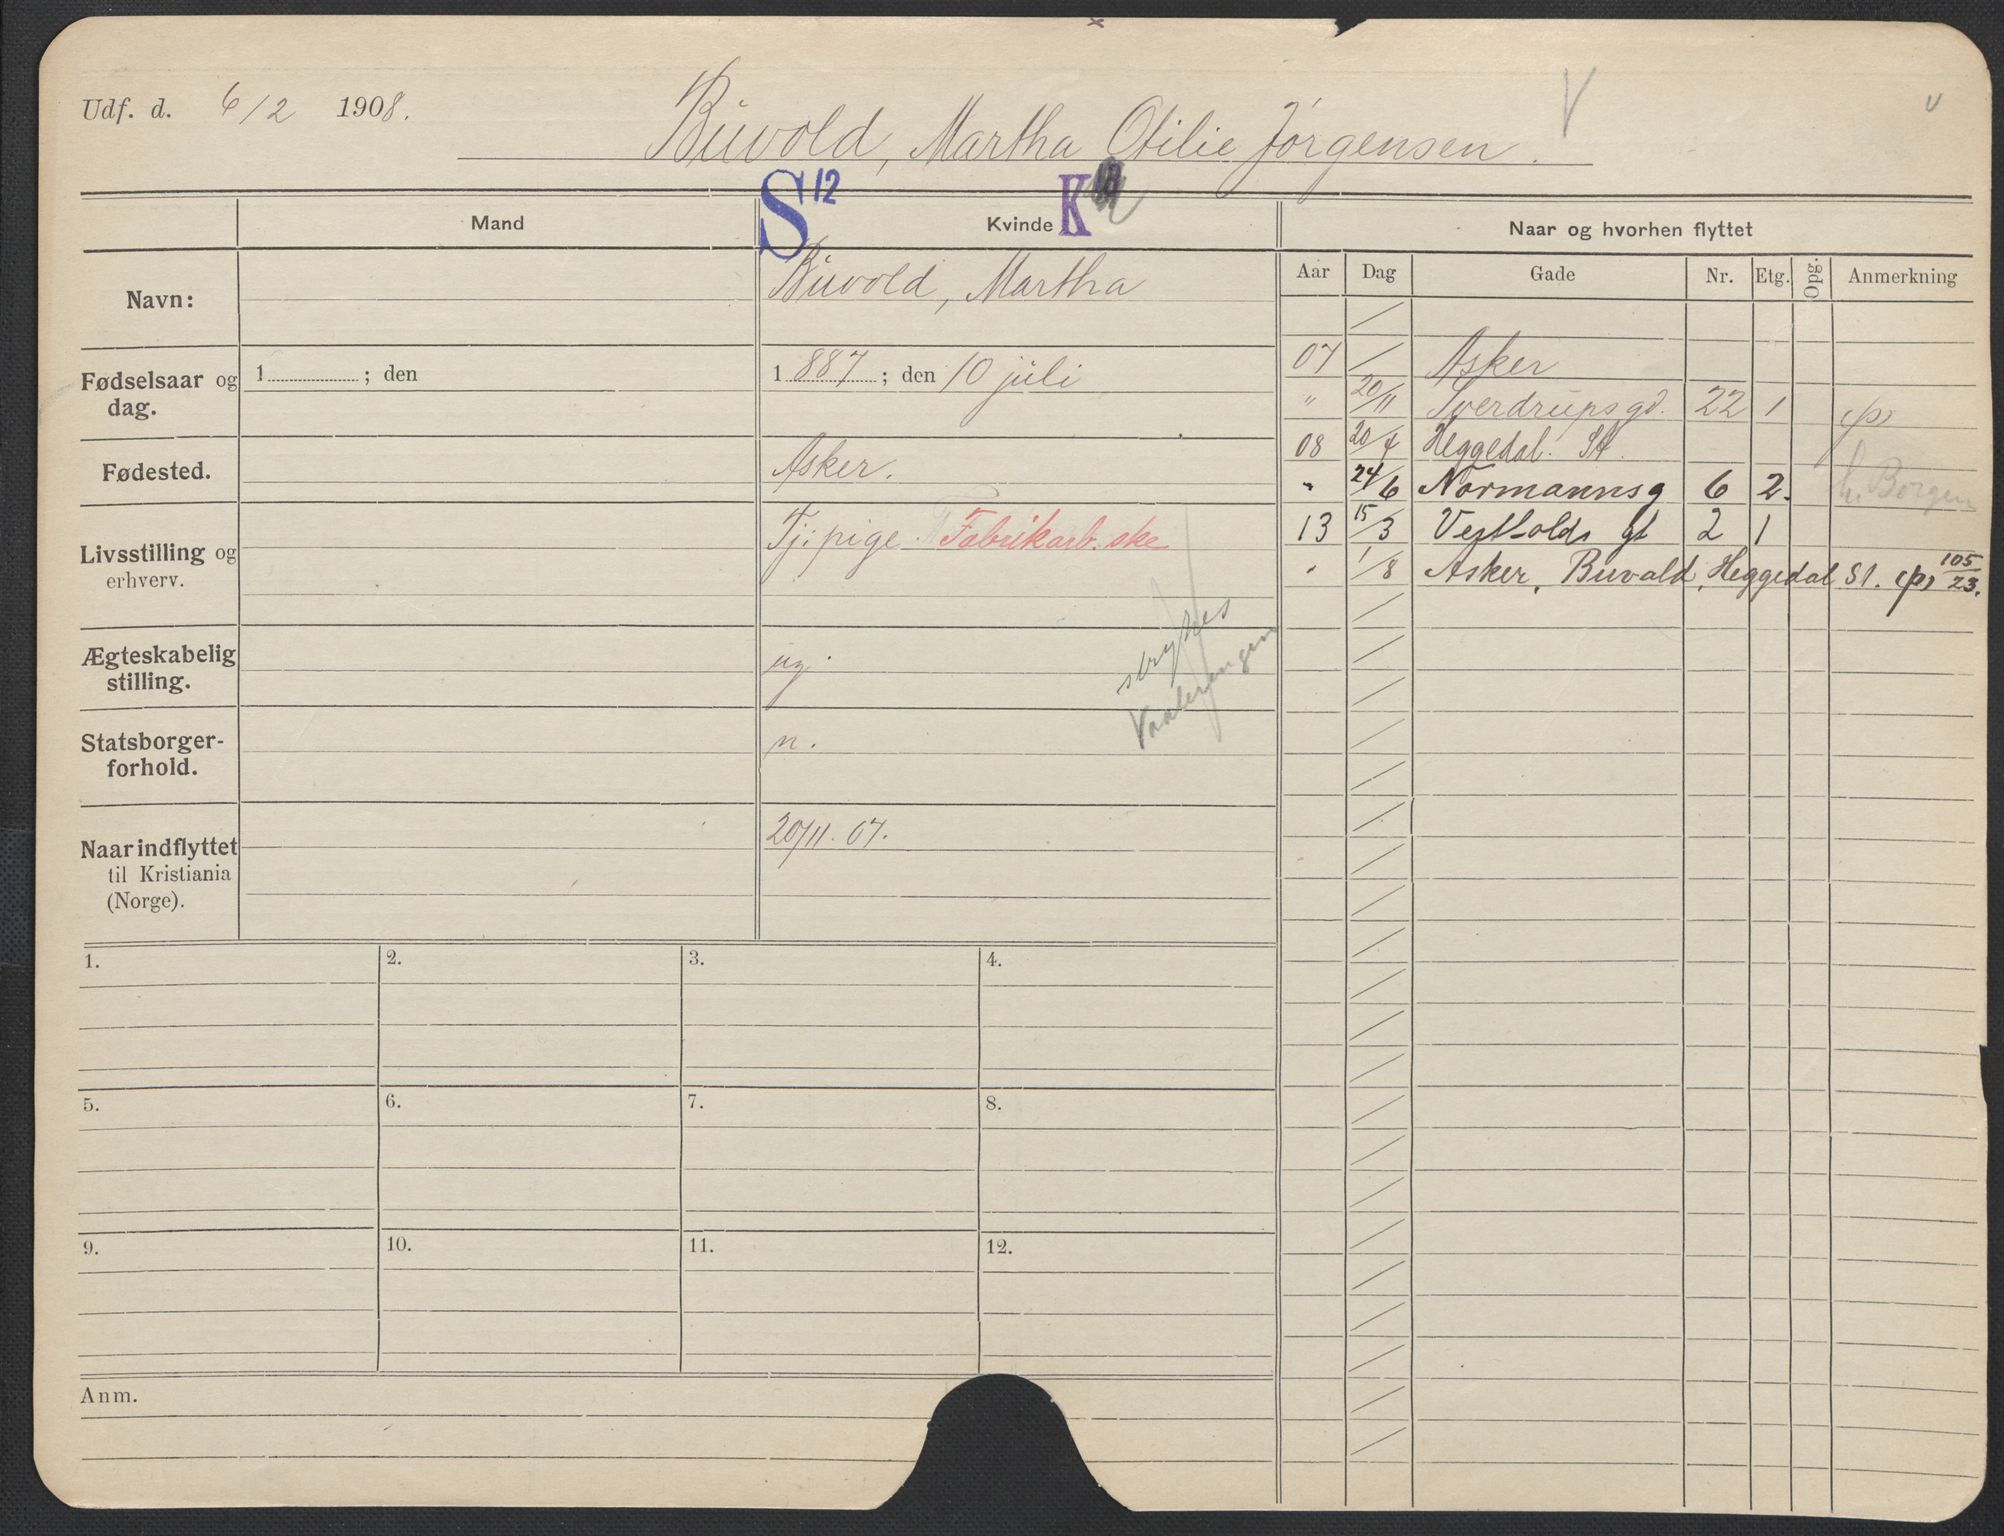 Udf. d. 6/2 1908.
Buvold, Martha Otilie Jørgensen. V
v
S 12
K
Mand
Kvinde
Naar og hvorhen flyttet
Aar Dag Gade Nr. Etg. Opg. Anmerkning
Navn:
Buvold, Martha
Fødselsaar og dag.
1 ; den
1 887 ; den 10 juli
Fødested.
Asker.
Livsstilling og erhverv.
Tj: pige. Fabrikarb.ske
Ægteskabelig stilling.
ug.
strykes
Vaalerengen
Statsborger-
forhold.
n.
Naar indflyttet
til Kristiania
(Norge).
20/11. 07.
07 / Asker
" 20/11 Sverdrups gd. 22 1 (ps)
08 20/4 Heggedal. St.
" 24/6 Normannsg 6 2. Borgen
13 15/3 Vestfolds gt 2 1
" 1/8 Asker, Buvald, Heggedal St. (ps) 105/23.
1. 2. 3. 4.
5. 6. 7. 8.
9. 10. 11. 12.
Anm.